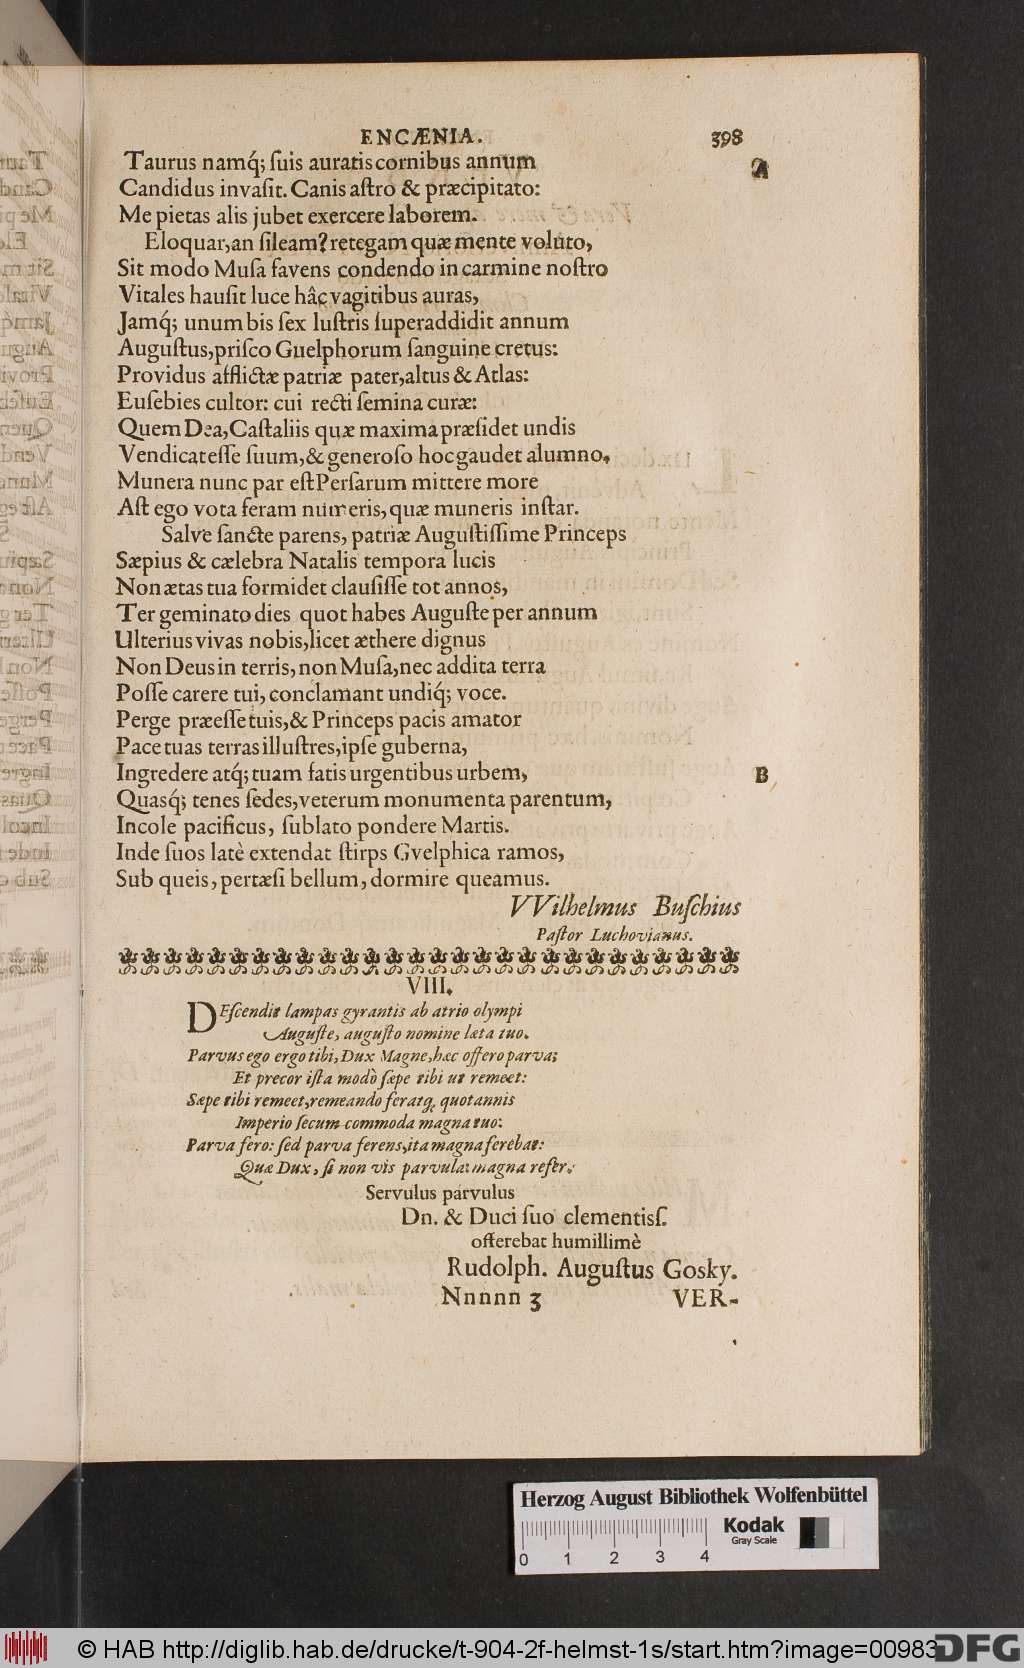 ENCÆNIA. 398
Taurus namq́; ſuis auratis cornibus annum
A
Candidus invaſit. Canis aſtro & præcipitato:
Me pietas alis jubet exercere laborem.
Eloquar, an ſileam? retegam quæ mente voluto,
Sit modo Muſa favens condendo in carmine noſtro
Vitales hauſit luce hâc vagitibus auras,
Jamq́; unum bis ſex luſtris ſuperaddidit annum
Auguſtus, priſco Guelphorum ſanguine cretus:
Providus afflictæ patriæ pater, altus & Atlas:
Euſebies cultor: cui recti ſemina curæ:
Quem Dea, Caſtaliis quæ maxima præſidet undis
Vendicat eſſe ſuum, & generoſo hoc gaudet alumno,
Munera nunc par eſt Perſarum mittere more
Aſt ego vota feram numeris, quæ muneris inſtar.
Salve ſancte parens, patriæ Auguſtiſſime Princeps
Sæpius & cælebra Natalis tempora lucis
Non ætas tua formidet clauſiſſe tot annos,
Ter geminato dies quot habes Auguſte per annum
Ulterius vivas nobis, licet æthere dignus
Non Deus in terris, non Muſa, nec addita terra
Poſſe carere tui, conclamant undiq́; voce.
Perge præeſſe tuis, & Princeps pacis amator
Pace tuas terras illuſtres, ipſe guberna,
Ingredere atq́; tuam fatis urgentibus urbem,
B
Quasq́; tenes ſedes, veterum monumenta parentum,
Incole pacificus, ſublato pondere Martis.
Inde ſuos latè extendat ſtirps Gvelphica ramos,
Sub queis, pertæſi bellum, dormire queamus.
VVilhelmus Buſchius
Paſtor Luchovianus.
VIII.
DEſcendit lampas gyrantis ab atrio olympi
Auguſte, auguſto nomine læta tuo.
Parvus ego ergo tibi, Dux Magne, hæc offero parva;
Et precor iſta modò ſæpe tibi ut remeet:
Sæpe tibi remeet, remeando feratq; quotannis
Imperio ſecum commoda magna tuo:
Parva fero: ſed parva ferens, ita magna ferebat:
Quæ Dux, ſi non vis parvula: magna refer.
Servulus parvulus
Dn. & Duci ſuo clementiſſ.
offerebat humillimè
Rudolph. Auguſtus Gosky.
Nnnnn 3 VER-
Herzog August Bibliothek Wolfenbüttel
Kodak
Gray Scale
0 1 2 3 4
© HAB http://diglib.hab.de/drucke/t-904-2f-helmst-1s/start.htm?image=00983
DFG